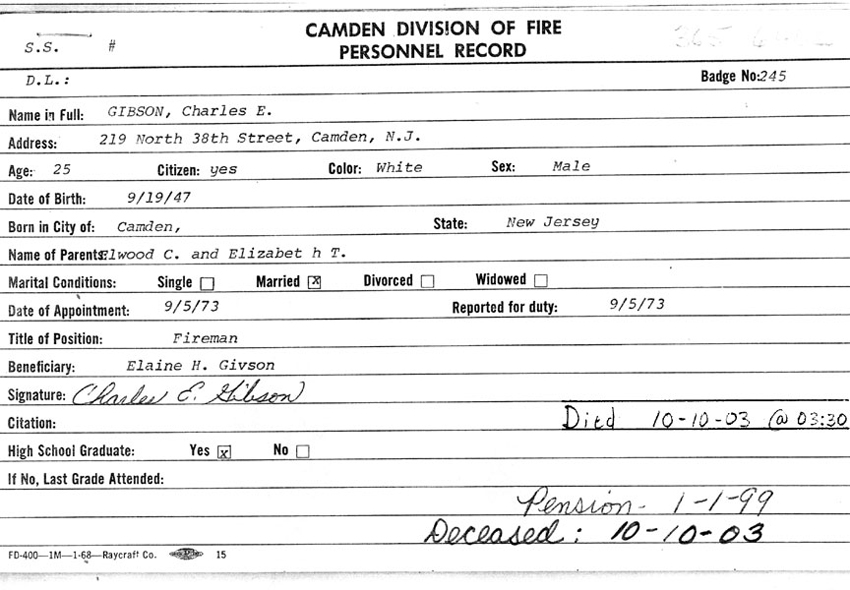 CAMDEN DIVISION OF FIRE
S.S. # PERSONNEL RECORD
D.L.: Badge No:245
Name in Full: GIBSON, Charles E.
Address: 219 North 38th Street, Camden, N.J.
Age: 25 Citizen: yes Color: White Sex: Male
Date of Birth: 9/19/47
Born in City of: Camden, State: New Jersey
Name of Parents: Elwood C. and Elizabet h T.
Marital Conditions: Single ☐ Married ☒ Divorced ☐ Widowed ☐
Date of Appointment: 9/5/73 Reported for duty: 9/5/73
Title of Position: Fireman
Beneficiary: Elaine H. Givson
Signature: Charles E. Gibson
Citation: Died 10-10-03 @ 03:30
High School Graduate: Yes ☒ No ☐
If No, Last Grade Attended:
Pension - 1-1-99
Deceased: 10-10-03
FD-400—1M—1-68—Raycraft Co. 15